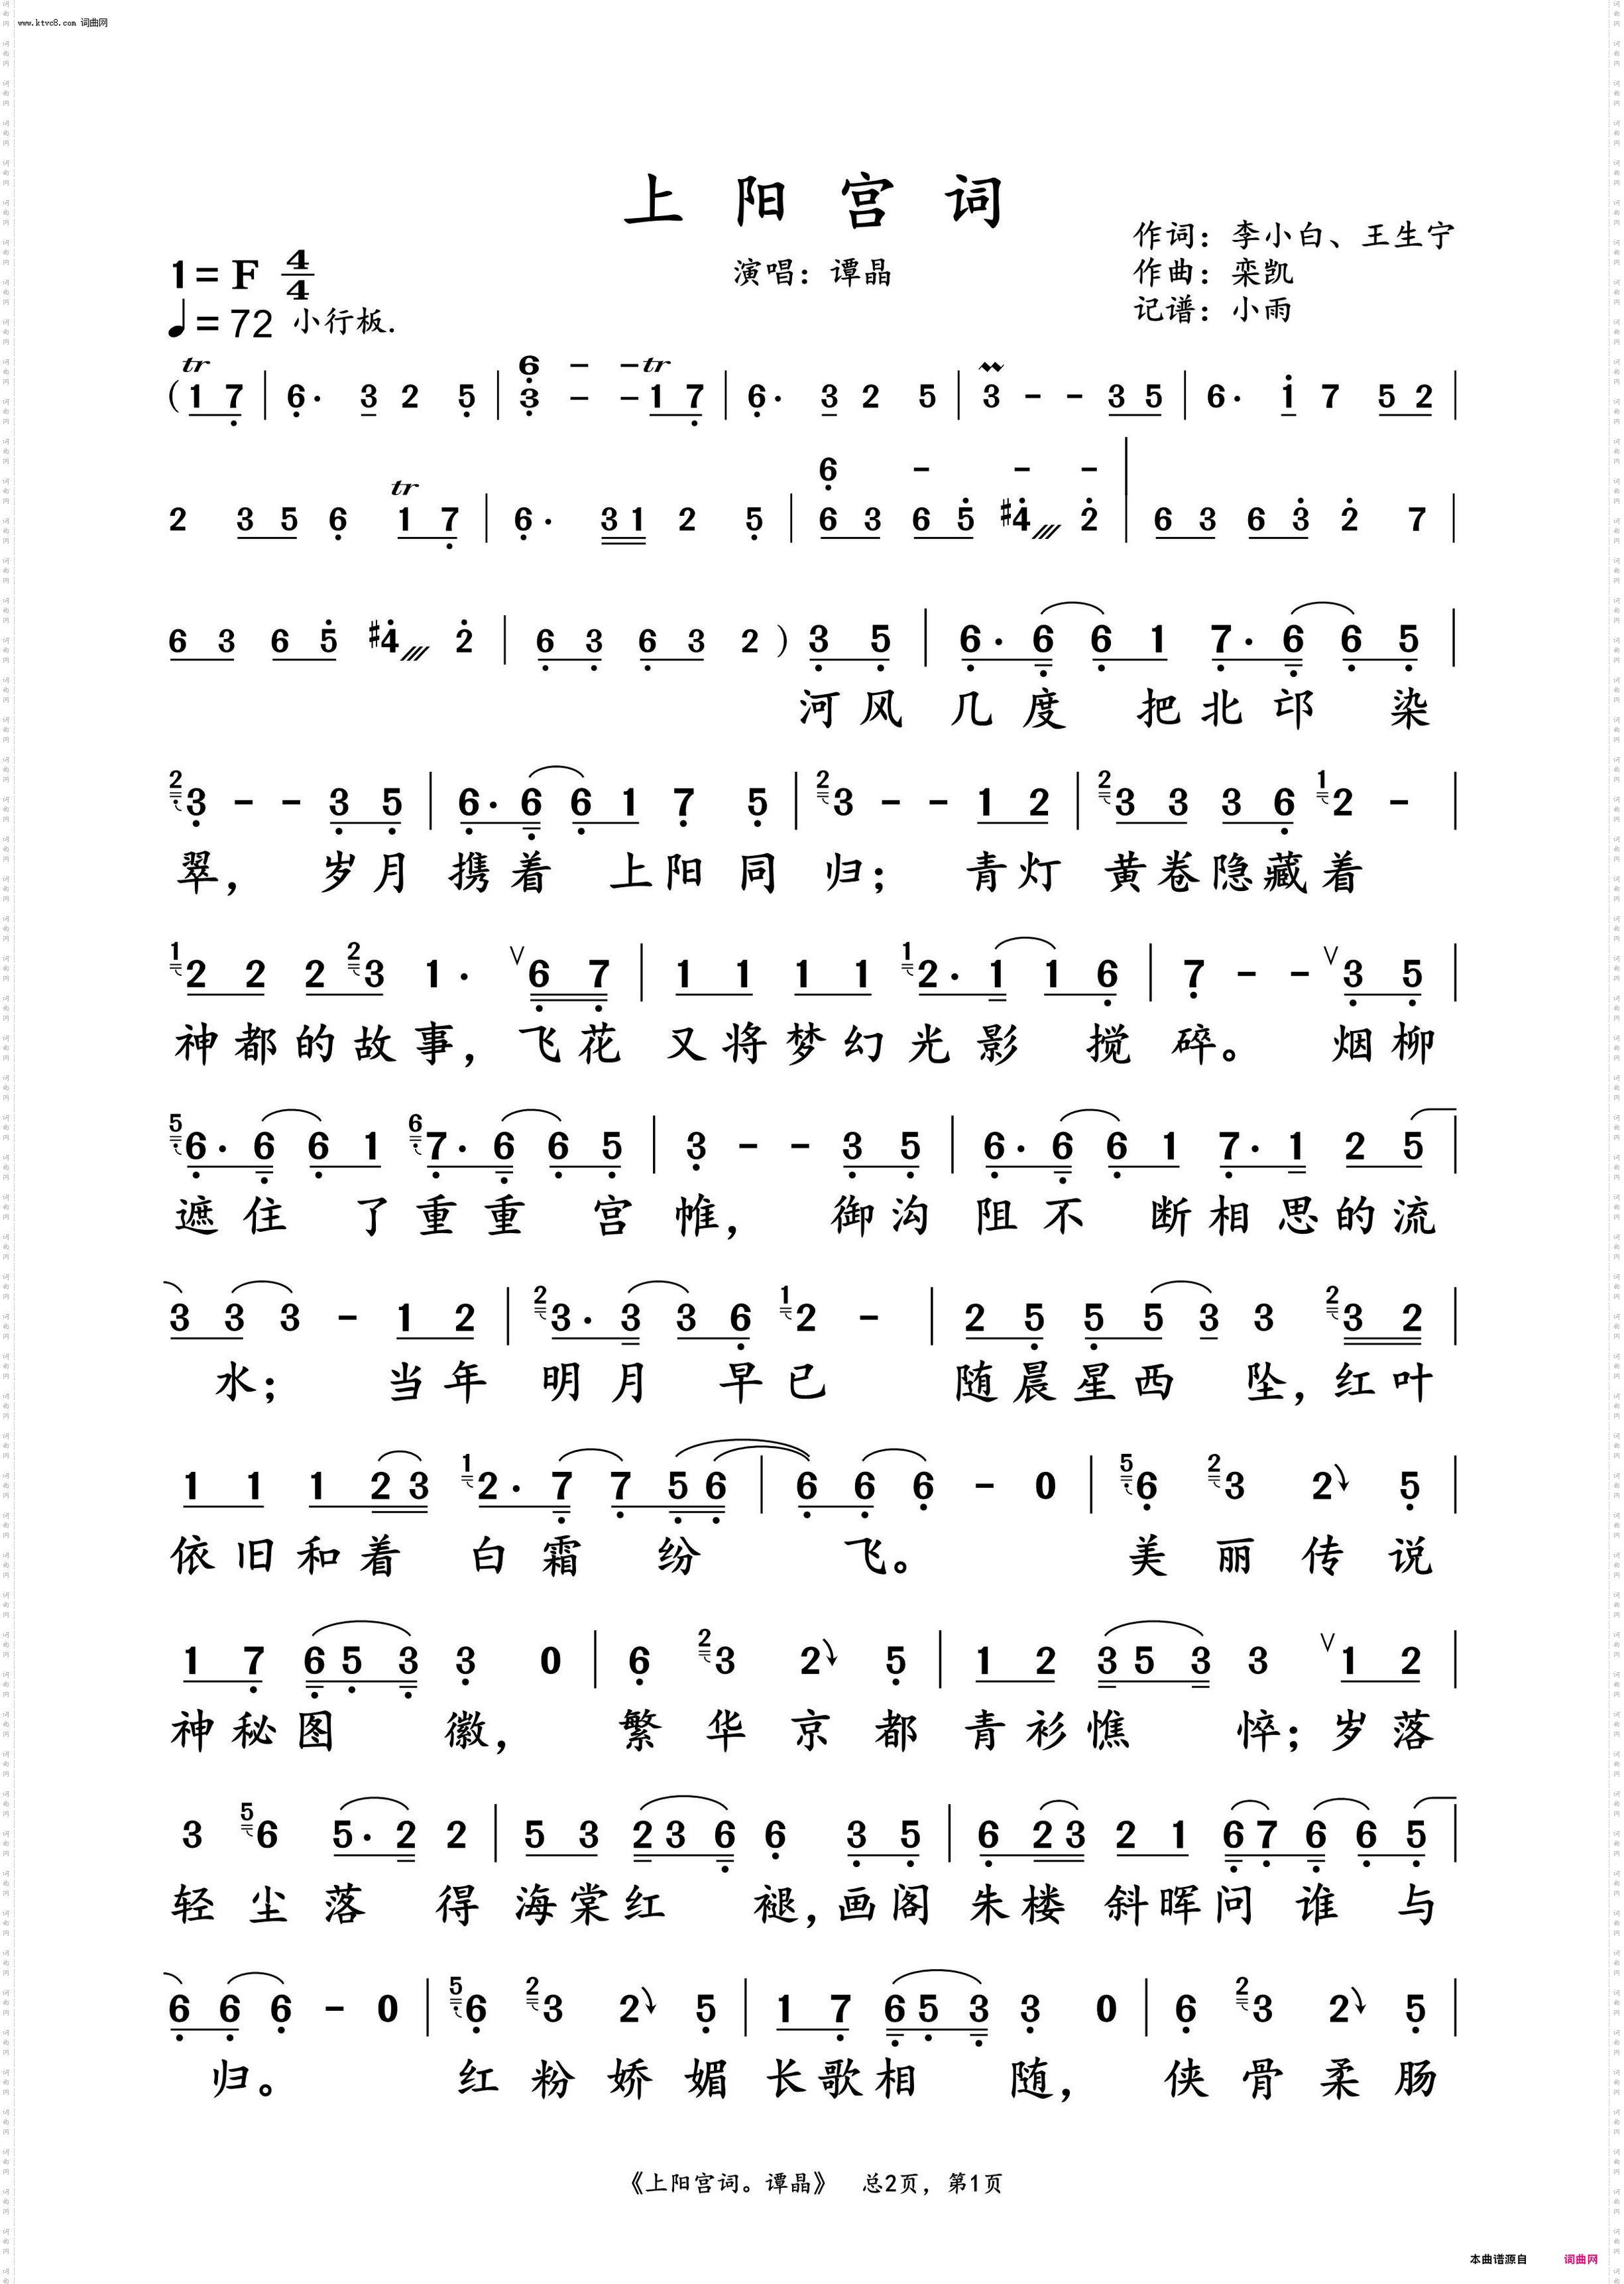 www.ktvc8.com 词曲网
上阳宫词
作词：李小白、王生宁
1=F 4/4
演唱：谭晶
作曲：栾凯
♩=72 小行板.
记谱：小雨
(1 7 | 6· 3 2 5 | 6 - - 3 - - 1 7 | 6· 3 2 5 | 3 - - 3 5 | 6· 1 7 5 2 |
6 - - -
2 3 5 6 1 7 | 6· 3 1 2 5 | 6 3 6 5 #4 2 | 6 3 6 3 2 7 |
6 3 6 5 #4 2 | 6 3 6 3 2 ) 3 5 | 6· 6 6 1 7· 6 6 5 |
河风 几度 把北邙 染
2 3 - - 3 5 | 6· 6 6 1 7 5 | 2 3 - - 1 2 | 2 3 3 3 6 1 2 - |
翠， 岁月 携着 上阳 同 归； 青灯 黄卷隐藏着
1 2 2 2 2 3 1· 6 7 | 1 1 1 1 1 2· 1 1 6 | 7 - - 3 5 |
神都的故事，飞花 又将梦幻光影 搅 碎。 烟柳
5 6· 6 6 1 6 7· 6 6 5 | 3 - - 3 5 | 6· 6 6 1 7· 1 2 5 |
遮住 了重重 宫 帷， 御沟 阻不 断相思的流
3 3 3 - 1 2 | 2 3· 3 3 6 1 2 - | 2 5 5 5 3 3 2 3 2 |
水； 当年 明月 早已 随晨星西 坠，红叶
1 1 1 2 3 1 2· 7 7 5 6 | 6 6 6 - 0 | 5 6 2 3 2 5 |
依旧和着 白霜 纷 飞。 美丽传说
1 7 6 5 3 3 0 | 6 2 3 2 5 | 1 2 3 5 3 3 1 2 |
神秘图 徽， 繁华京都 青衫憔 悴；岁落
3 5 6 5· 2 2 | 5 3 2 3 6 6 3 5 | 6 2 3 2 1 6 7 6 6 5 |
轻尘落 得 海棠红 褪，画阁 朱楼 斜晖问 谁 与
6 6 6 - 0 | 5 6 2 3 2 5 | 1 7 6 5 3 3 0 | 6 2 3 2 5 |
归。 红粉娇媚 长歌相 随， 侠骨柔肠
《上阳宫词。谭晶》 总2页，第1页
本曲谱源自 词曲网